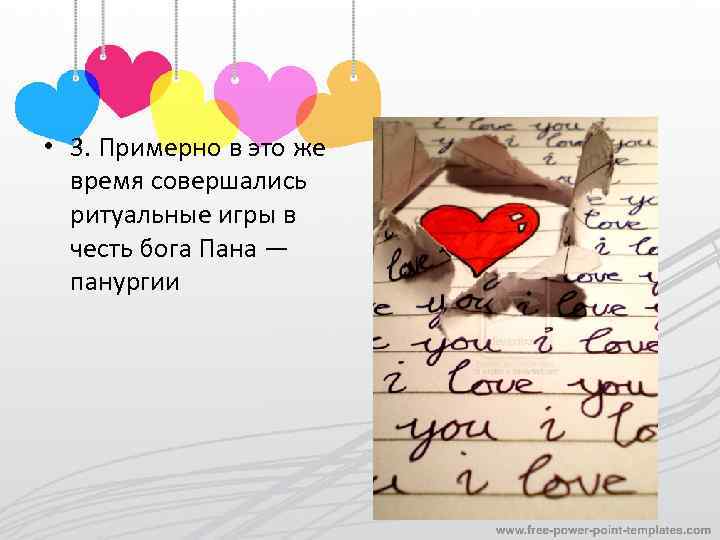 • 3. Примерно в это же
время совершались
ритуальные игры в
честь бога Пана —
панургии
i love you i
i love you
you
i lo
love
i lo
you i love
you i love
i love you
you i lo
i love
www.free-power-point-templates.com